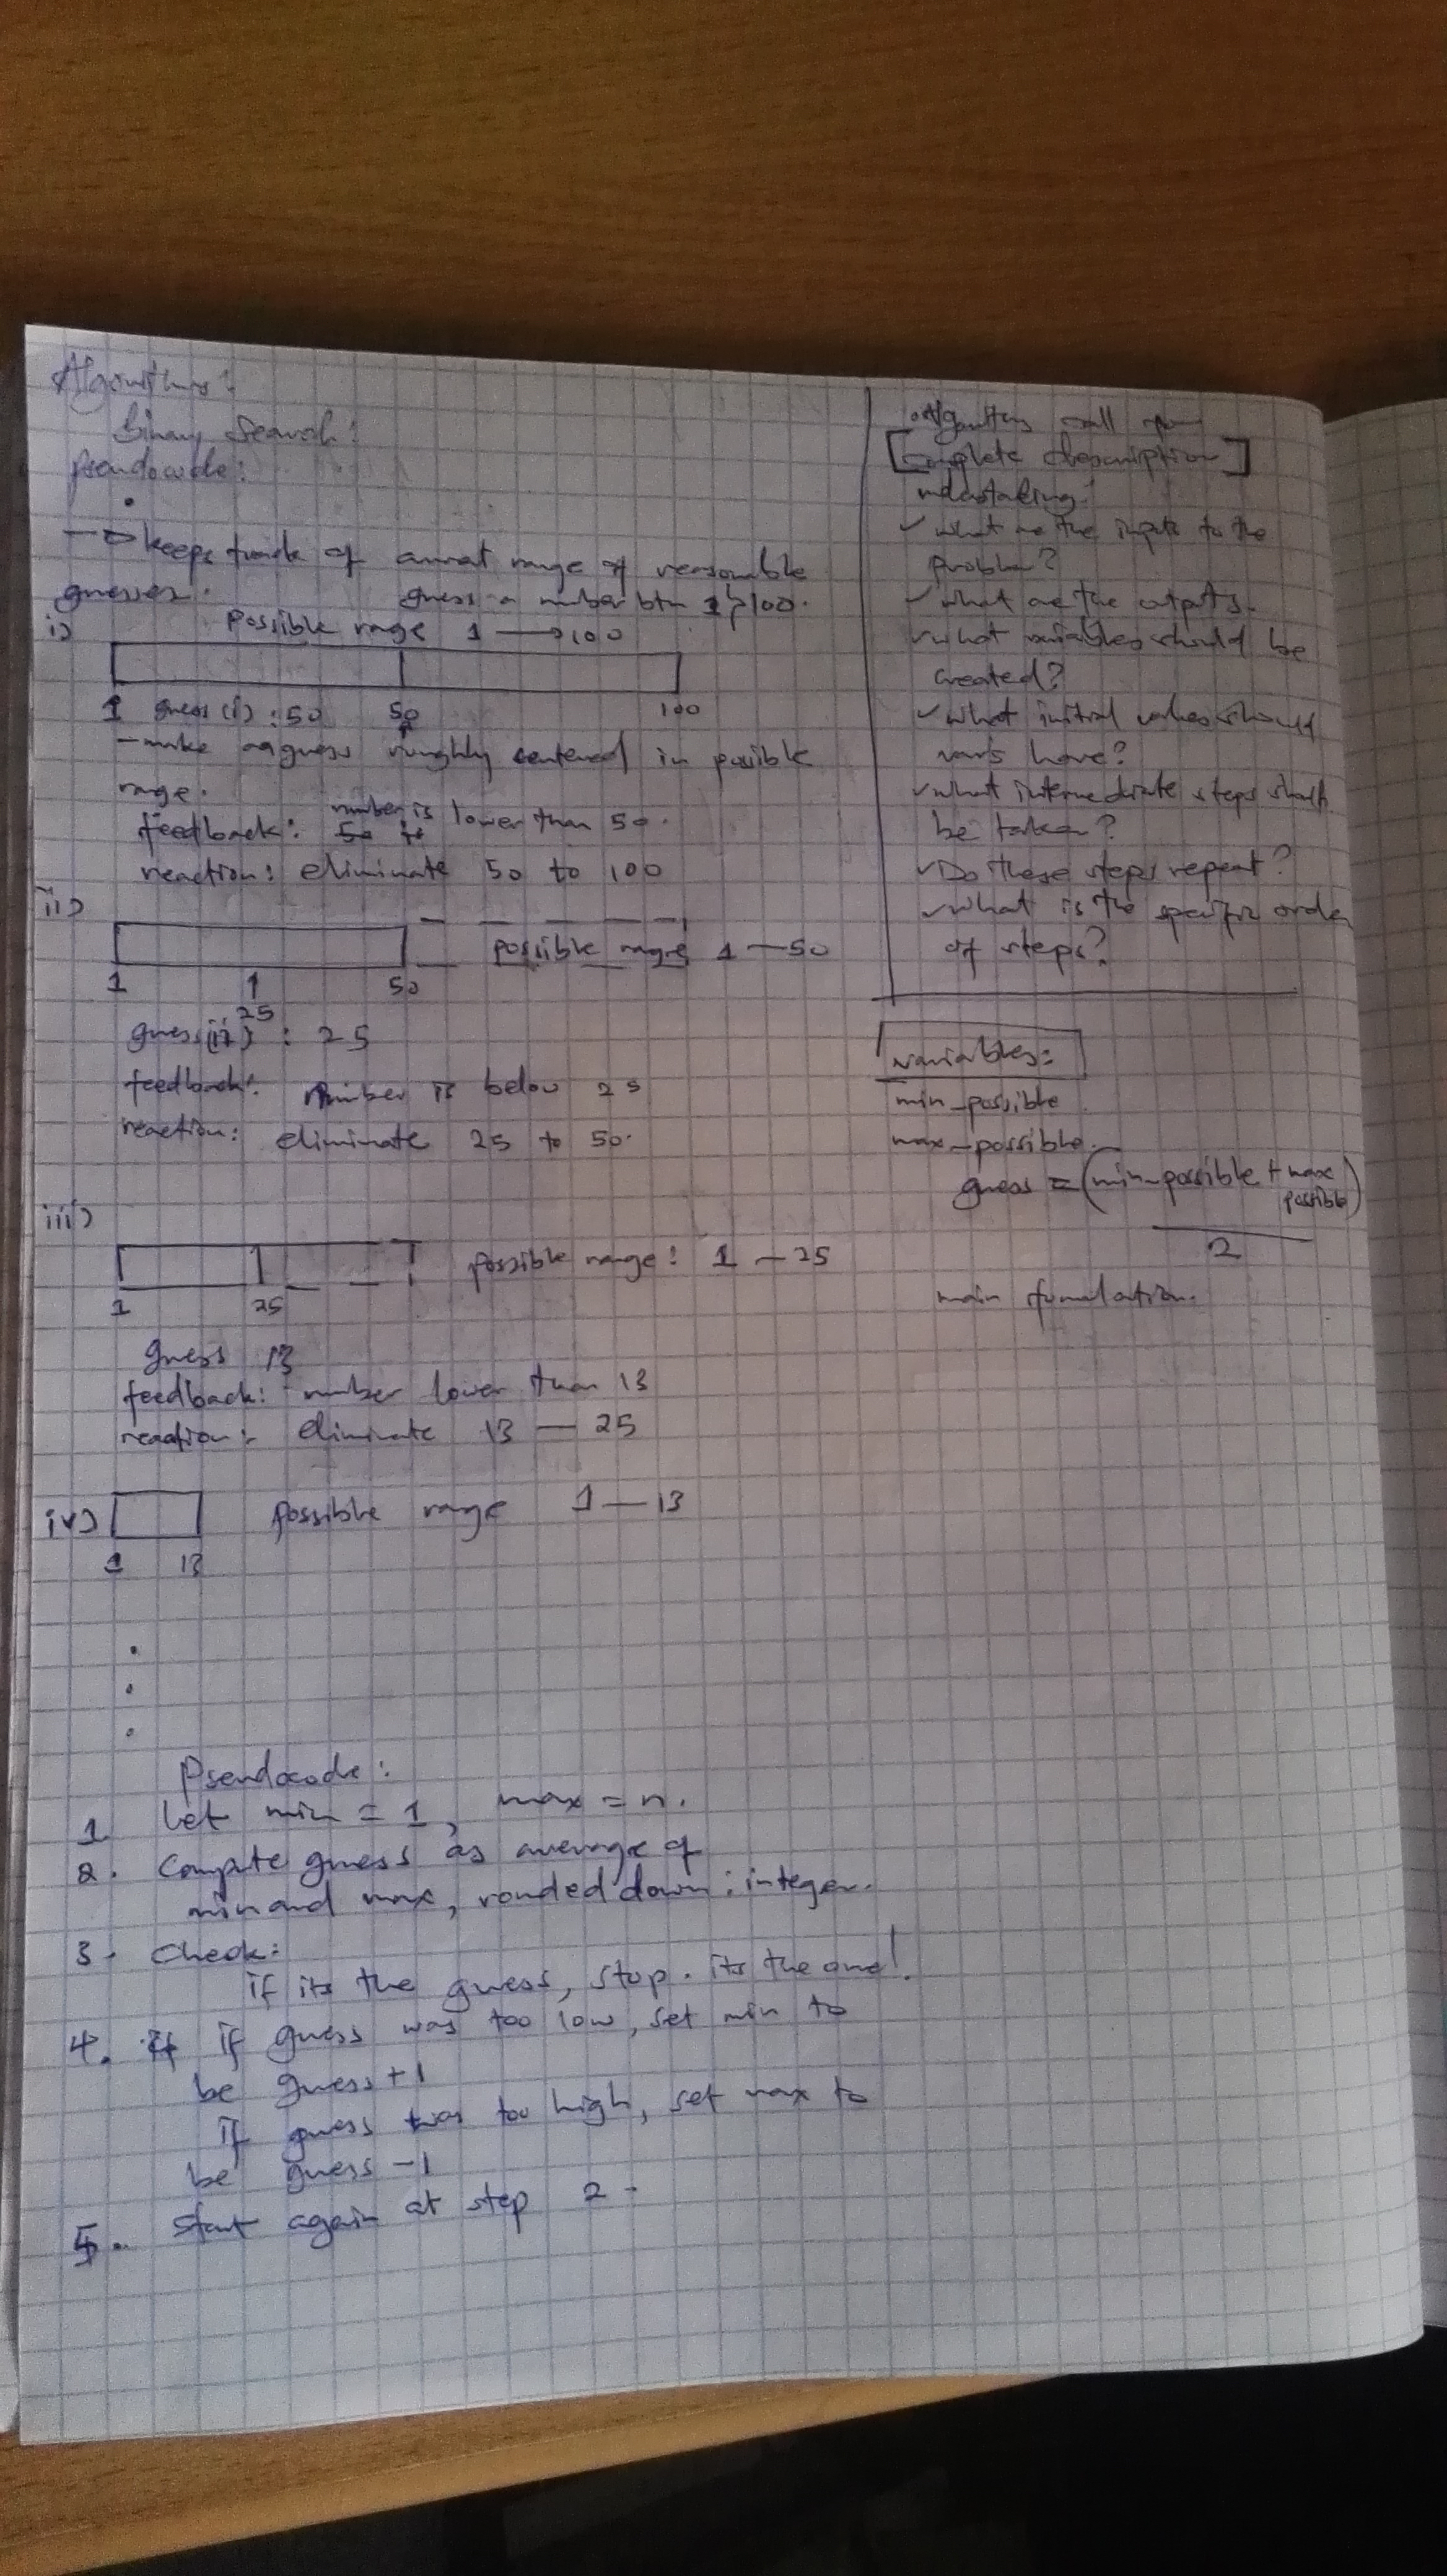 Algorithms:
Binary Search:
Pseudocode:
→ keeps track of current range of reasonable
guesses.
guess a number btn 1 100.
i) Possible range 1 → 100
1 50 100
guess (i) : 50
- make a guess roughly centered in possible
range.
feedback: number is lower than 50.
reaction: eliminate 50 to 100
ii)
possible range 1 — 50
1 25 50
guess(ii) : 25
feedback: number is below 25
reaction: eliminate 25 to 50.
iii)
possible range: 1 — 25
1 25
guess 13
feedback: number lower than 13
reaction: eliminate 13 — 25
iv) possible range 1 — 13
1 13
Pseudocode:
1. Let min = 1, max = n.
2. Compute guess as average of
min and max, rounded down: integer.
3. Check:
if its the guess, stop. its the one!
4. if guess was too low, set min to
be guess+1
if guess was too high, set max to
be guess -1
5. Start again at step 2.
Algorithms call
[complete description]
✓ what are the inputs to the
problem?
✓ what are the outputs.
✓ what variables should be
created?
✓ what initial values should
vars have?
✓ what intermediate steps
be taken?
✓ Do these steps repeat?
✓ what is the specific order
of steps?
variables:
min_possible
max_possible.
guess = (min_possible + max
possible)
2
main